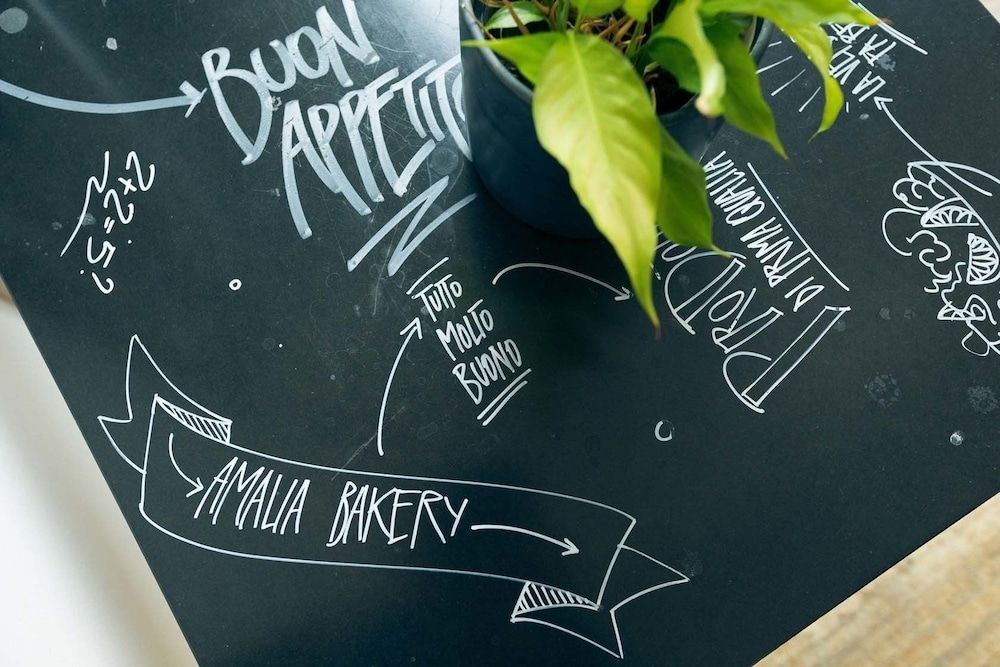 BUON
APPETITO
2x2=5?
TUTTO
MOLTO
BUONO
DI PRIMA QUALITÀ
LA
AMALIA BAKERY